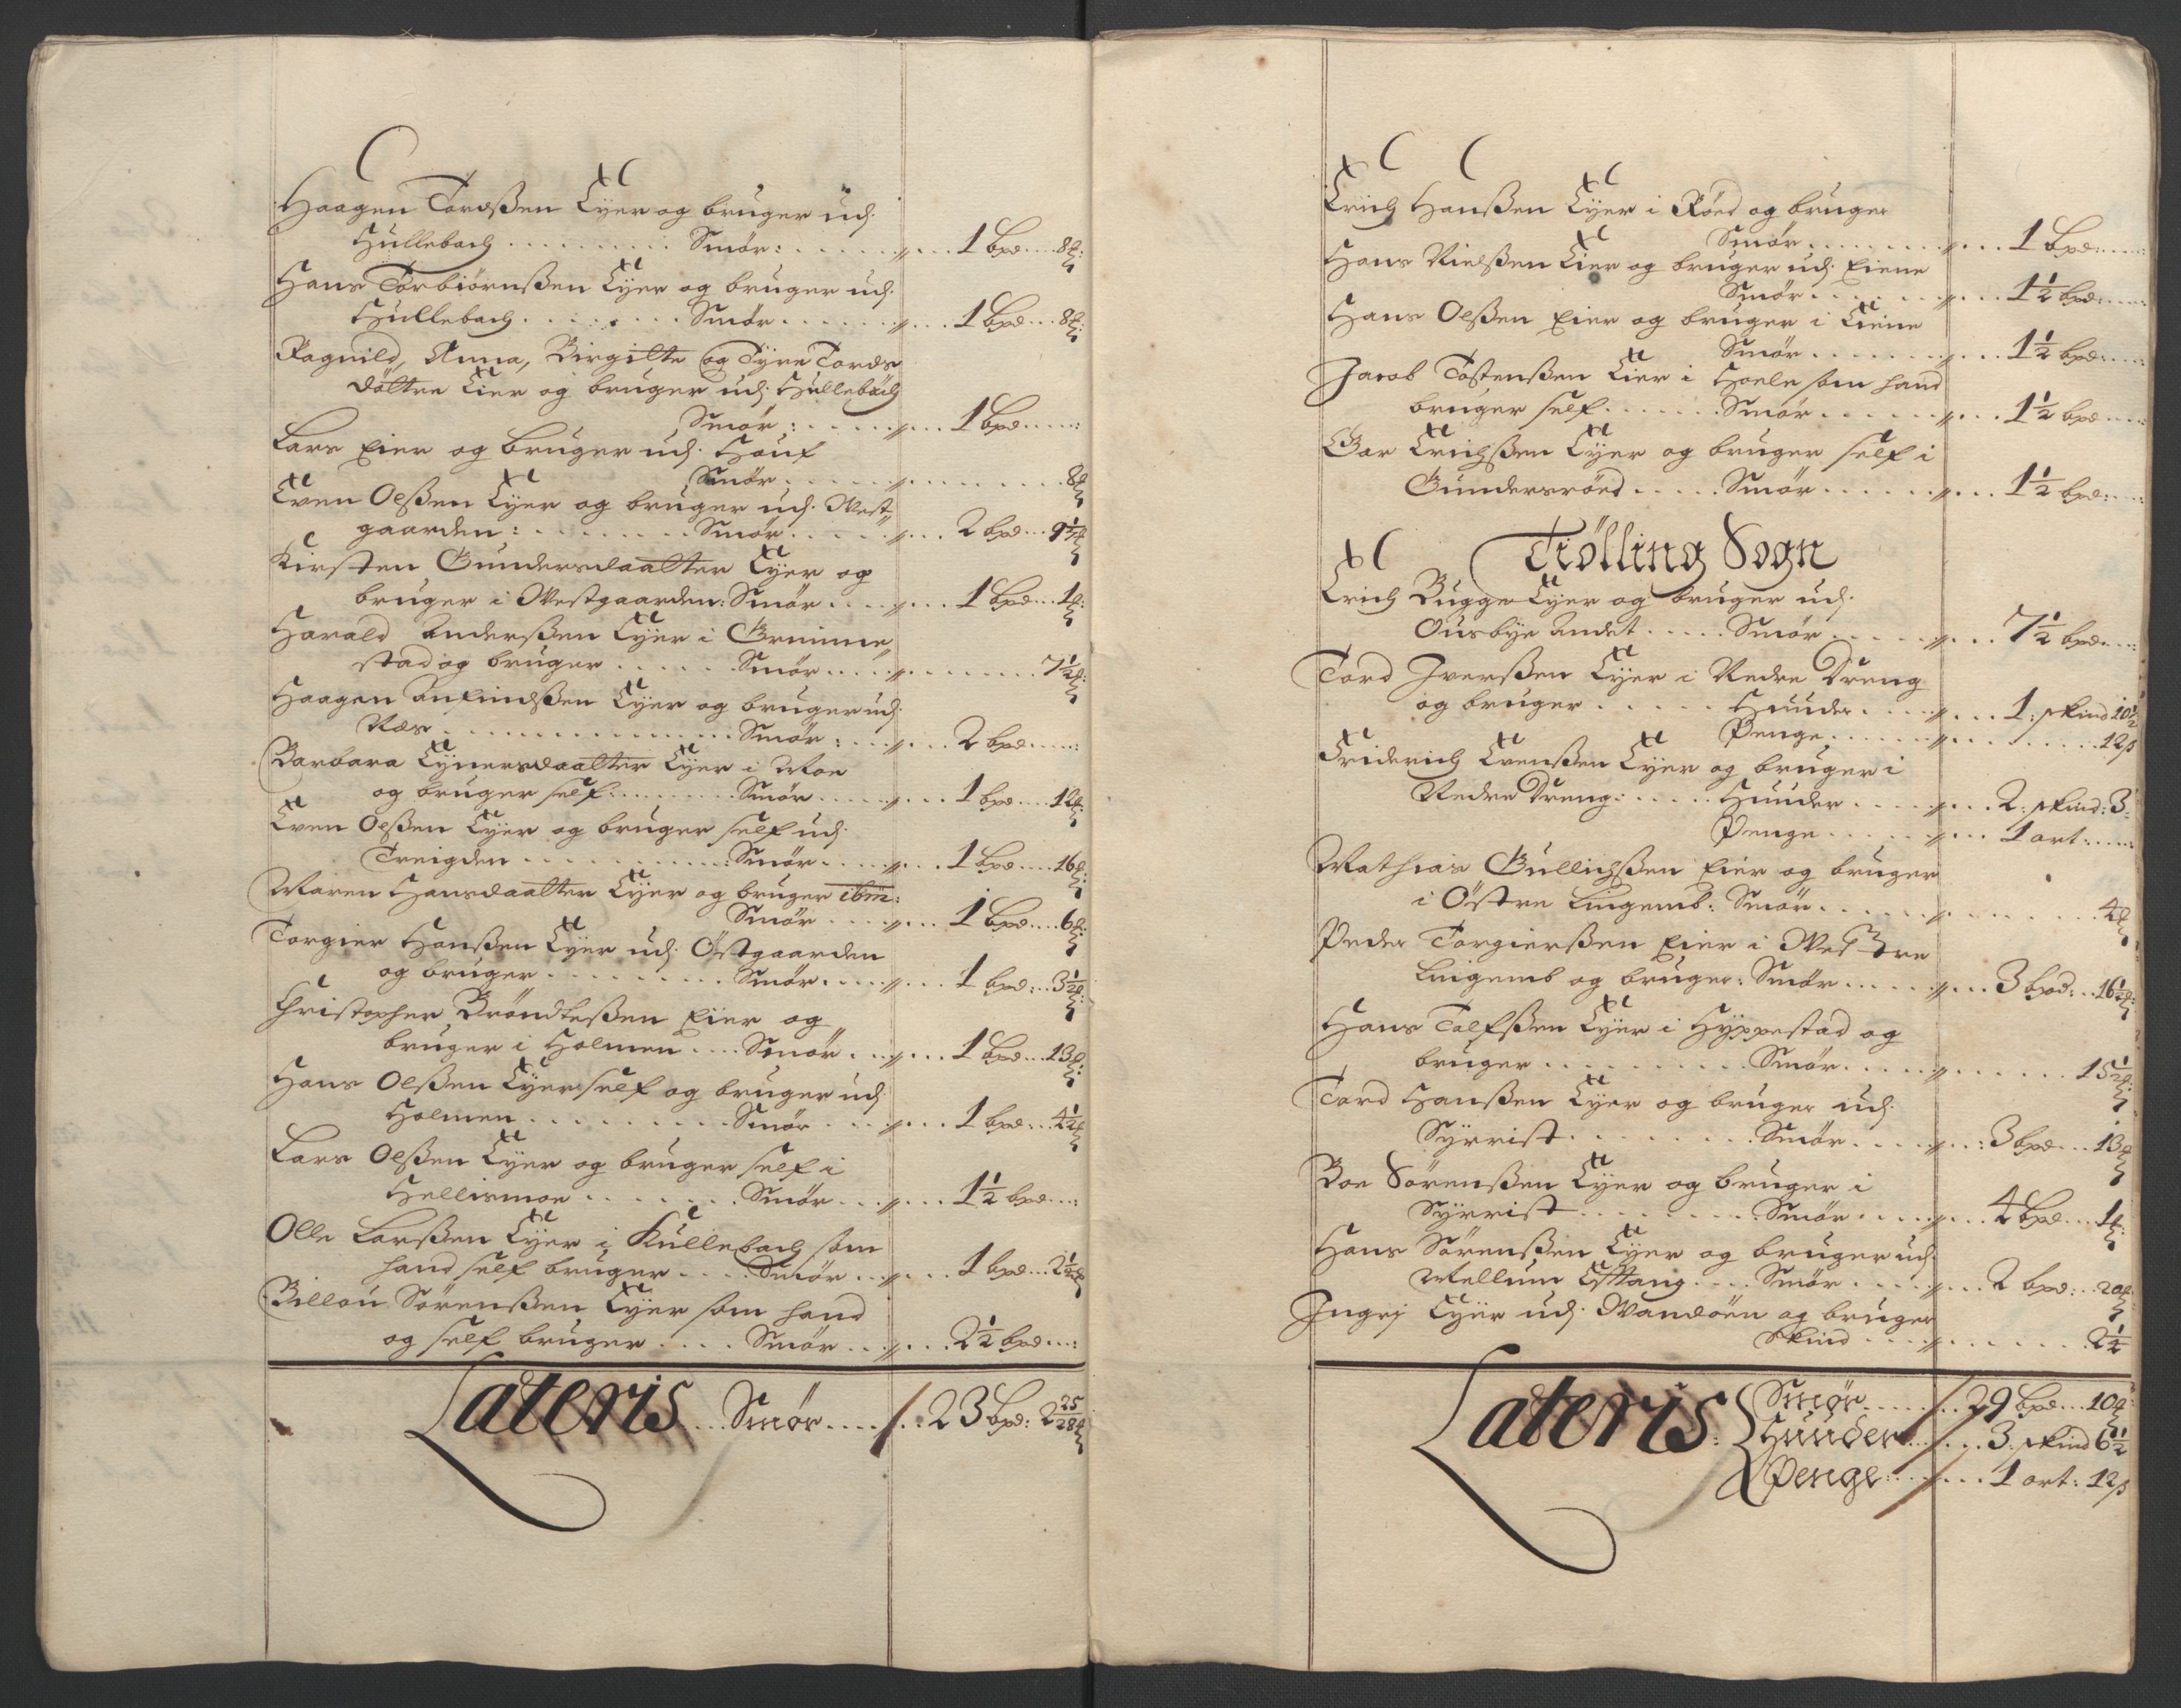 Haagen Tordßen Eyer og bruger udj
Hullebach . . . . Smør: . . . 1 bpd . . 8 ℔:
Hans Torbiørnßen Eyer og bruger udj
Hullebach . . . . Smør . . . 1 bpd . . 8 ℔:
Ragnild, Anna, Birgitte og Tyre Tords
døttre Eier og bruger udj Hullebach
Smør: . . . 1 bpd . . :
Lars Eier og bruger udj Houf
Smør . . . 8 ℔
Even Olßen Eyer og bruger udj West-
gaarden: . . . . Smør . . . 2 bpd . . ℔
Kirsten Gundersdaatter Eyer og
bruger i Westgaarden: Smør . . . 1 bpd . . 1 ℔:
Harald Anderßen Eyer i Grimme-
stad og bruger . . . . Smør . . . 7½ ℔:
Haagen Anfindßen Eyer og bruger udj
Næs . . . . Smør: . . . 2 bpd . . :
Barbara Eynersdaatter Eyer i Moe
og bruger self . . . . Smør . . . 1 bpd . . 12 ℔:
Even Olßen Eyer og bruger self udj
Treigden . . . . Smør . . . 1 bpd . . 16 ℔:
Maren Hansdaatter Eyer og bruger ibm:
Smør . . . 1 bpd . . 6 ℔:
Torgier Hanßen Eyer udj Østgaarden
og bruger . . . . Smør . . . 1 bpd . . 3½ ℔:
Christopher Brøndteßen Eier og
bruger i Holmen . . . . Smør . . . 1 bpd . . 13 ℔:
Hans Olßen Eyer self og bruger udj
Holmen . . . . Smør . . . 1 bpd . . 4½ ℔
Lars Olßen Eyer og bruger self i
Hellismoe . . . . Smør . . . 1½ bpd . . :
Olle Larßen Eyer i Kullebach som
hand self bruger . . . . Smør . . . 1 bpd . . 2½ ℔
Billou Sørenßen Eyer som hand
og self bruger . . . . Smør . . . 2½ bpd . . :
Lateris . . . Smør . . . 23 bpd: 2 25/28 ℔
Erich Hanßen Eyer i Røed og bruger
Smør . . . 1 bpd: . . :
Hans Nielßen Eier og bruger udj Eiene
Smør . . . 1½ bpd: . . :
Hans Olßen Eier og bruger i Eiene
Smør . . . 1½ bpd: . . :
Jacob Tostenßen Eier i Hoele som hand
bruger self . . . . Smør . . . 1½ bpd . . :
Gar Erichßen Eyer og bruger self i
Gundersrøed . . . . Smør . . . 1½ bpd: . . :
Tiølling Sogn
Erich Bugge Eyer og bruger udj
Ousbye Andet . . . . Smør . . . 7½ bpd . . :
Tord Iverßen Eyer i Nedre Dreng
og bruger . . . . Huuder . . . 1: skind 10½
Penge . . . 12 ß
Friderich Evenßen Eyer og bruger i
Nedre Dreng: . . . . Huuder . . . 2: skind: 3:
Penge . . . 1 ort: . . :
Mathias Gullichßen Eier og bruger
i Østre Lingemb: Smør . . . 4 ℔
Peder Torgierßen Eier i Westre
Lingemb og bruger: Smør . . . 3 bpd: . . 16½ ℔:
Hans Tolfßen Eyer i Hyppestad og
bruger . . . . Smør . . . 15½ ℔:
Tord Hanßen Eyer og bruger udj
Syrrist . . . . Smør . . . 3 bpd . . 13 ℔
Boe Sørenßen Eyer og bruger i
Syrrist . . . . Smør . . . 4 bpd . . 1 ℔:
Hans Sørenßen Eyer og bruger udj
Mellum . . . . Smør . . . 2 bpd: . . 20 ℔:
Ingej Eyer udj Wandøen og bruger
Skind . . . 2½
Lateris: Smør . . . 29 bpd . . 10 ℔:
Huuder . . . 3. skind 6½
Penge: . . . 1 ort: 12 ß